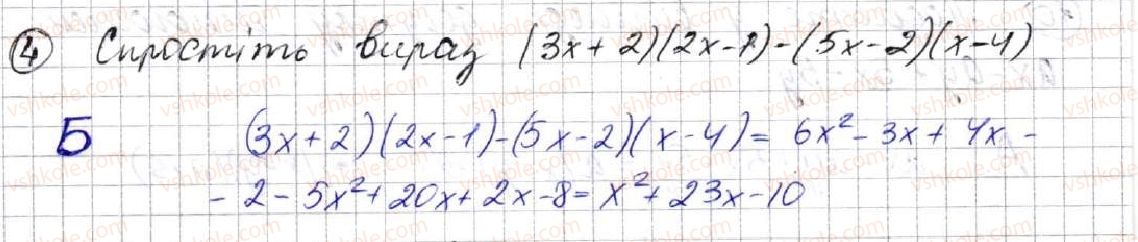 ④ Спростіть вираз (3x+2)(2x-1)-(5x-2)(x-4)
Б (3x+2)(2x-1)-(5x-2)(x-4)= 6x²- 3x+ 4x -
- 2 - 5x²+ 20x+ 2x -8= x²+ 23x-10